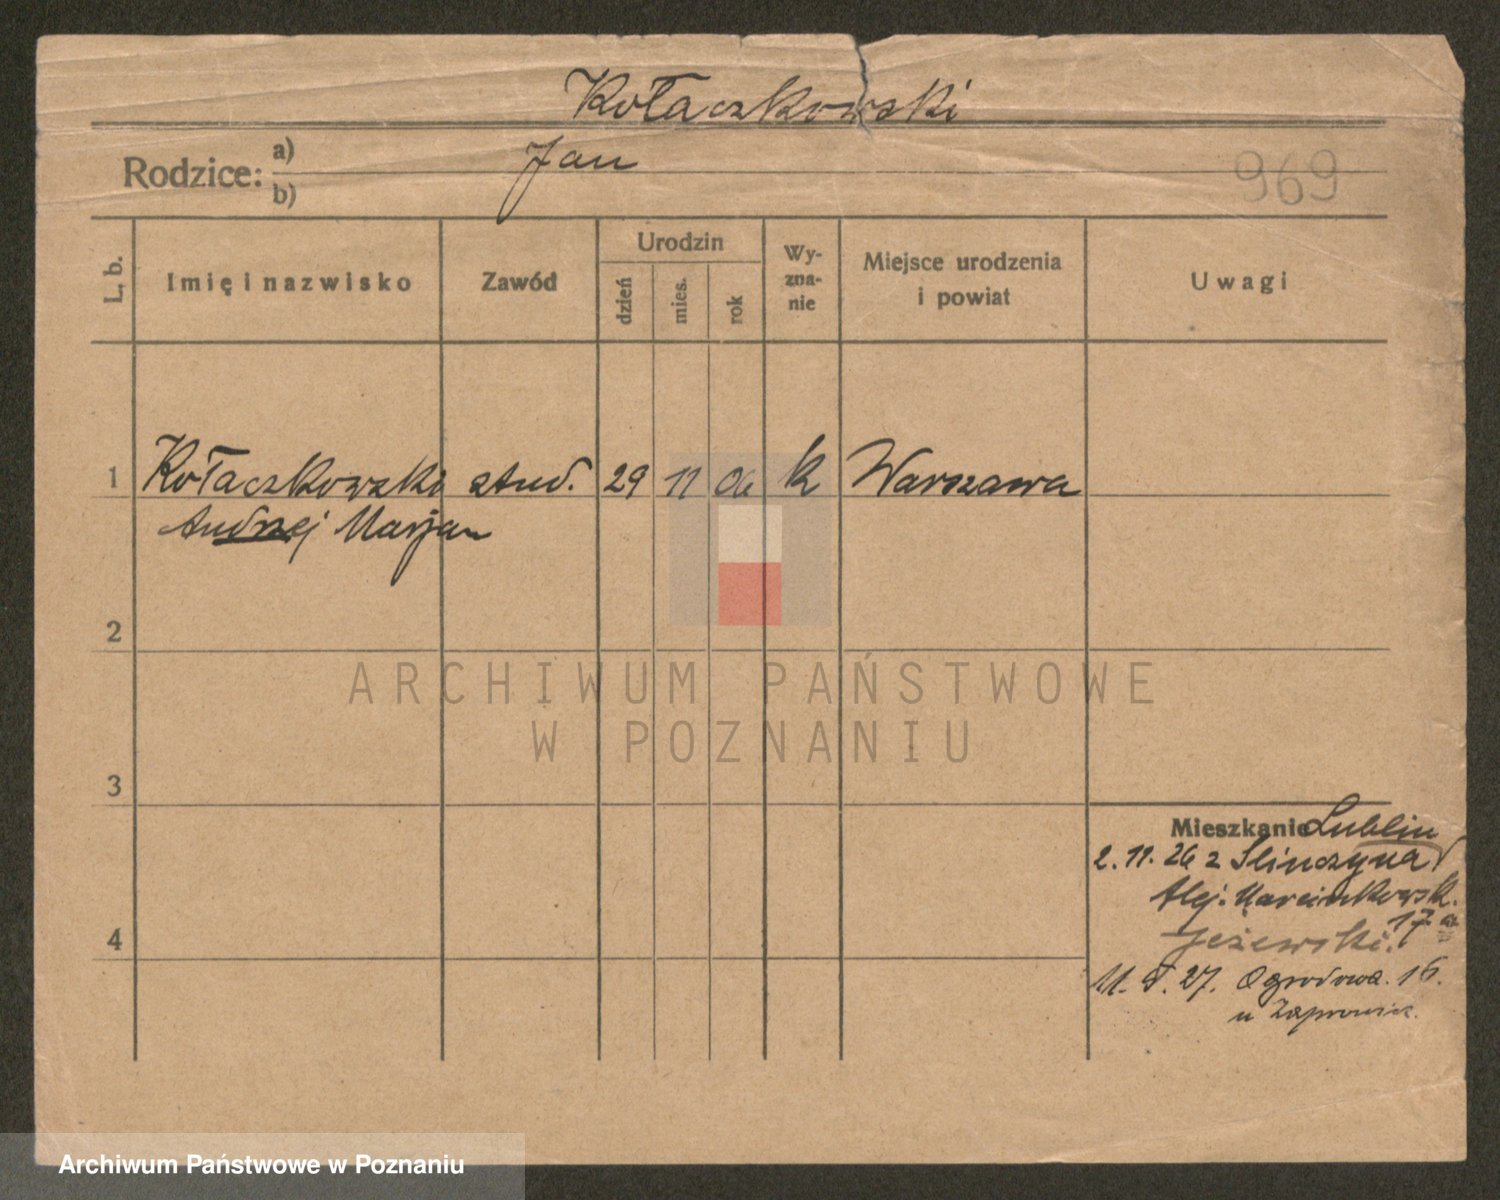 Kołaczkowski
Rodzice: a) Jan
b)
969
L. b.
Imię i nazwisko
Zawód
Urodzin
dzień
mies.
rok
Wy-
zna-
nie
Miejsce urodzenia
i powiat
Uwagi
1 Kołaczkowski stud. 29 11 06 k Warszawa
Andrzej Marjan
2
3
4
Mieszkanie Lublin
2. 11. 26 z
Alej. Marcinkowsk.
17 a
Jeżewski.
27. Ogrodowa. 16.
u
ARCHIWUM PAŃSTWOWE
W POZNANIU
Archiwum Państwowe w Poznaniu